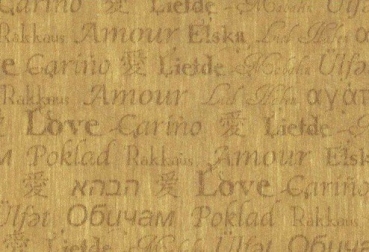 Cariño 愛 Liefde
Rakkaus Amour Elska
e Cariño 愛 Liefde Ülfət
Rakkaus Amour αγάπ
愛 Love Cariño 愛 Liefde
Poklad Rakkaus Amour Elsk
愛 אהבה 愛 Love Cariño
Ülfət Обичам Poklad Rakkaus
愛 Liefde Ülfət Обичам